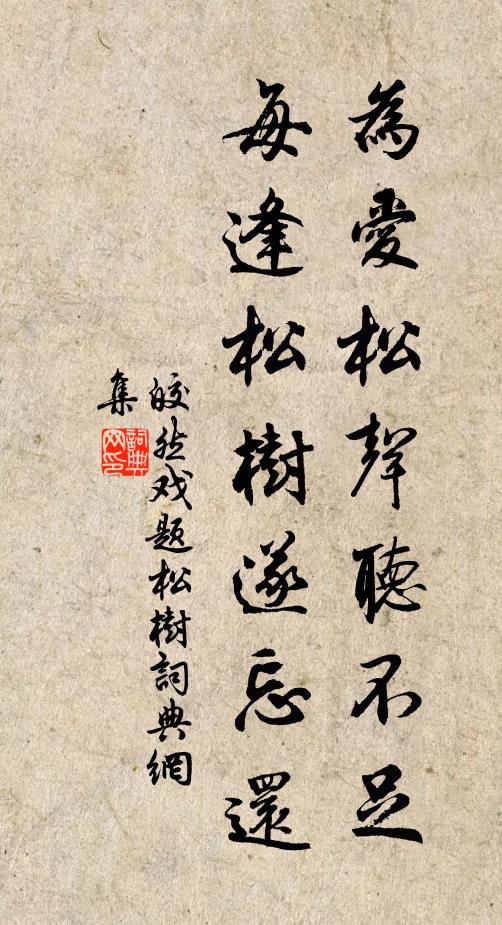 為愛松聲聽不足
每逢松樹遂忘還
皎然戏題松樹詞典網
集
詞典
网印